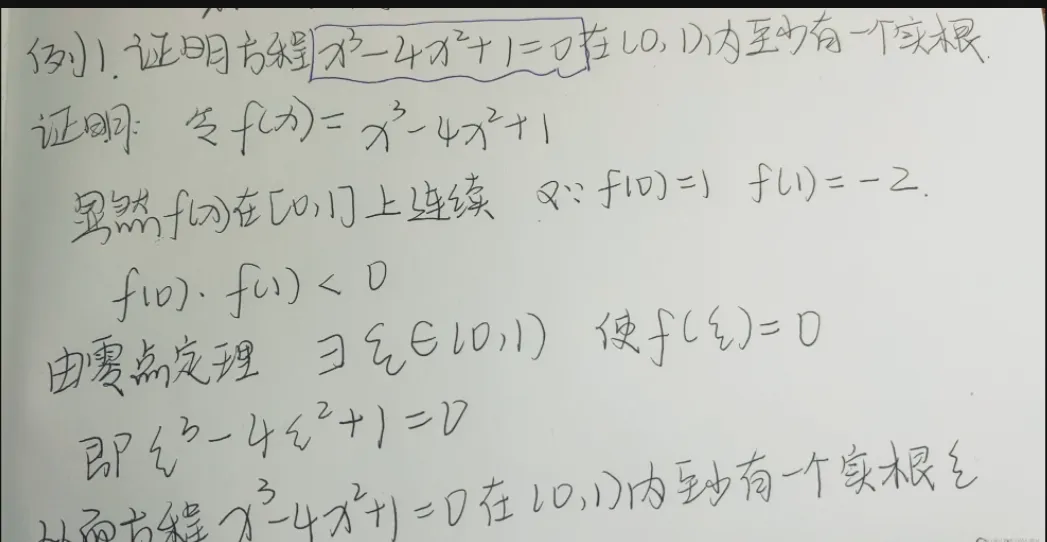 例1. 证明方程 x³-4x²+1=0 在(0,1)内至少有一个实根.
证明: 令f(x)= x³-4x²+1
显然f(x)在[0,1]上连续 又∵ f(0)=1 f(1)=-2.
f(0)·f(1)<0
由零点定理 ∃ξ∈(0,1) 使f(ξ)=0
即 ξ³-4ξ²+1=0
从而方程 x³-4x²+1=0在(0,1)内至少有一个实根ξ